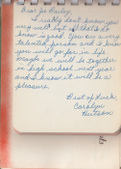 Dear Jo Bailey,
I really don't know you
very well but what I do
know is good. You are a very
talented person and I know
you will go far in life.
Maybe we will be together
in high school next year
and I know it will be a
pleasure.
Best of luck,
Carolyn